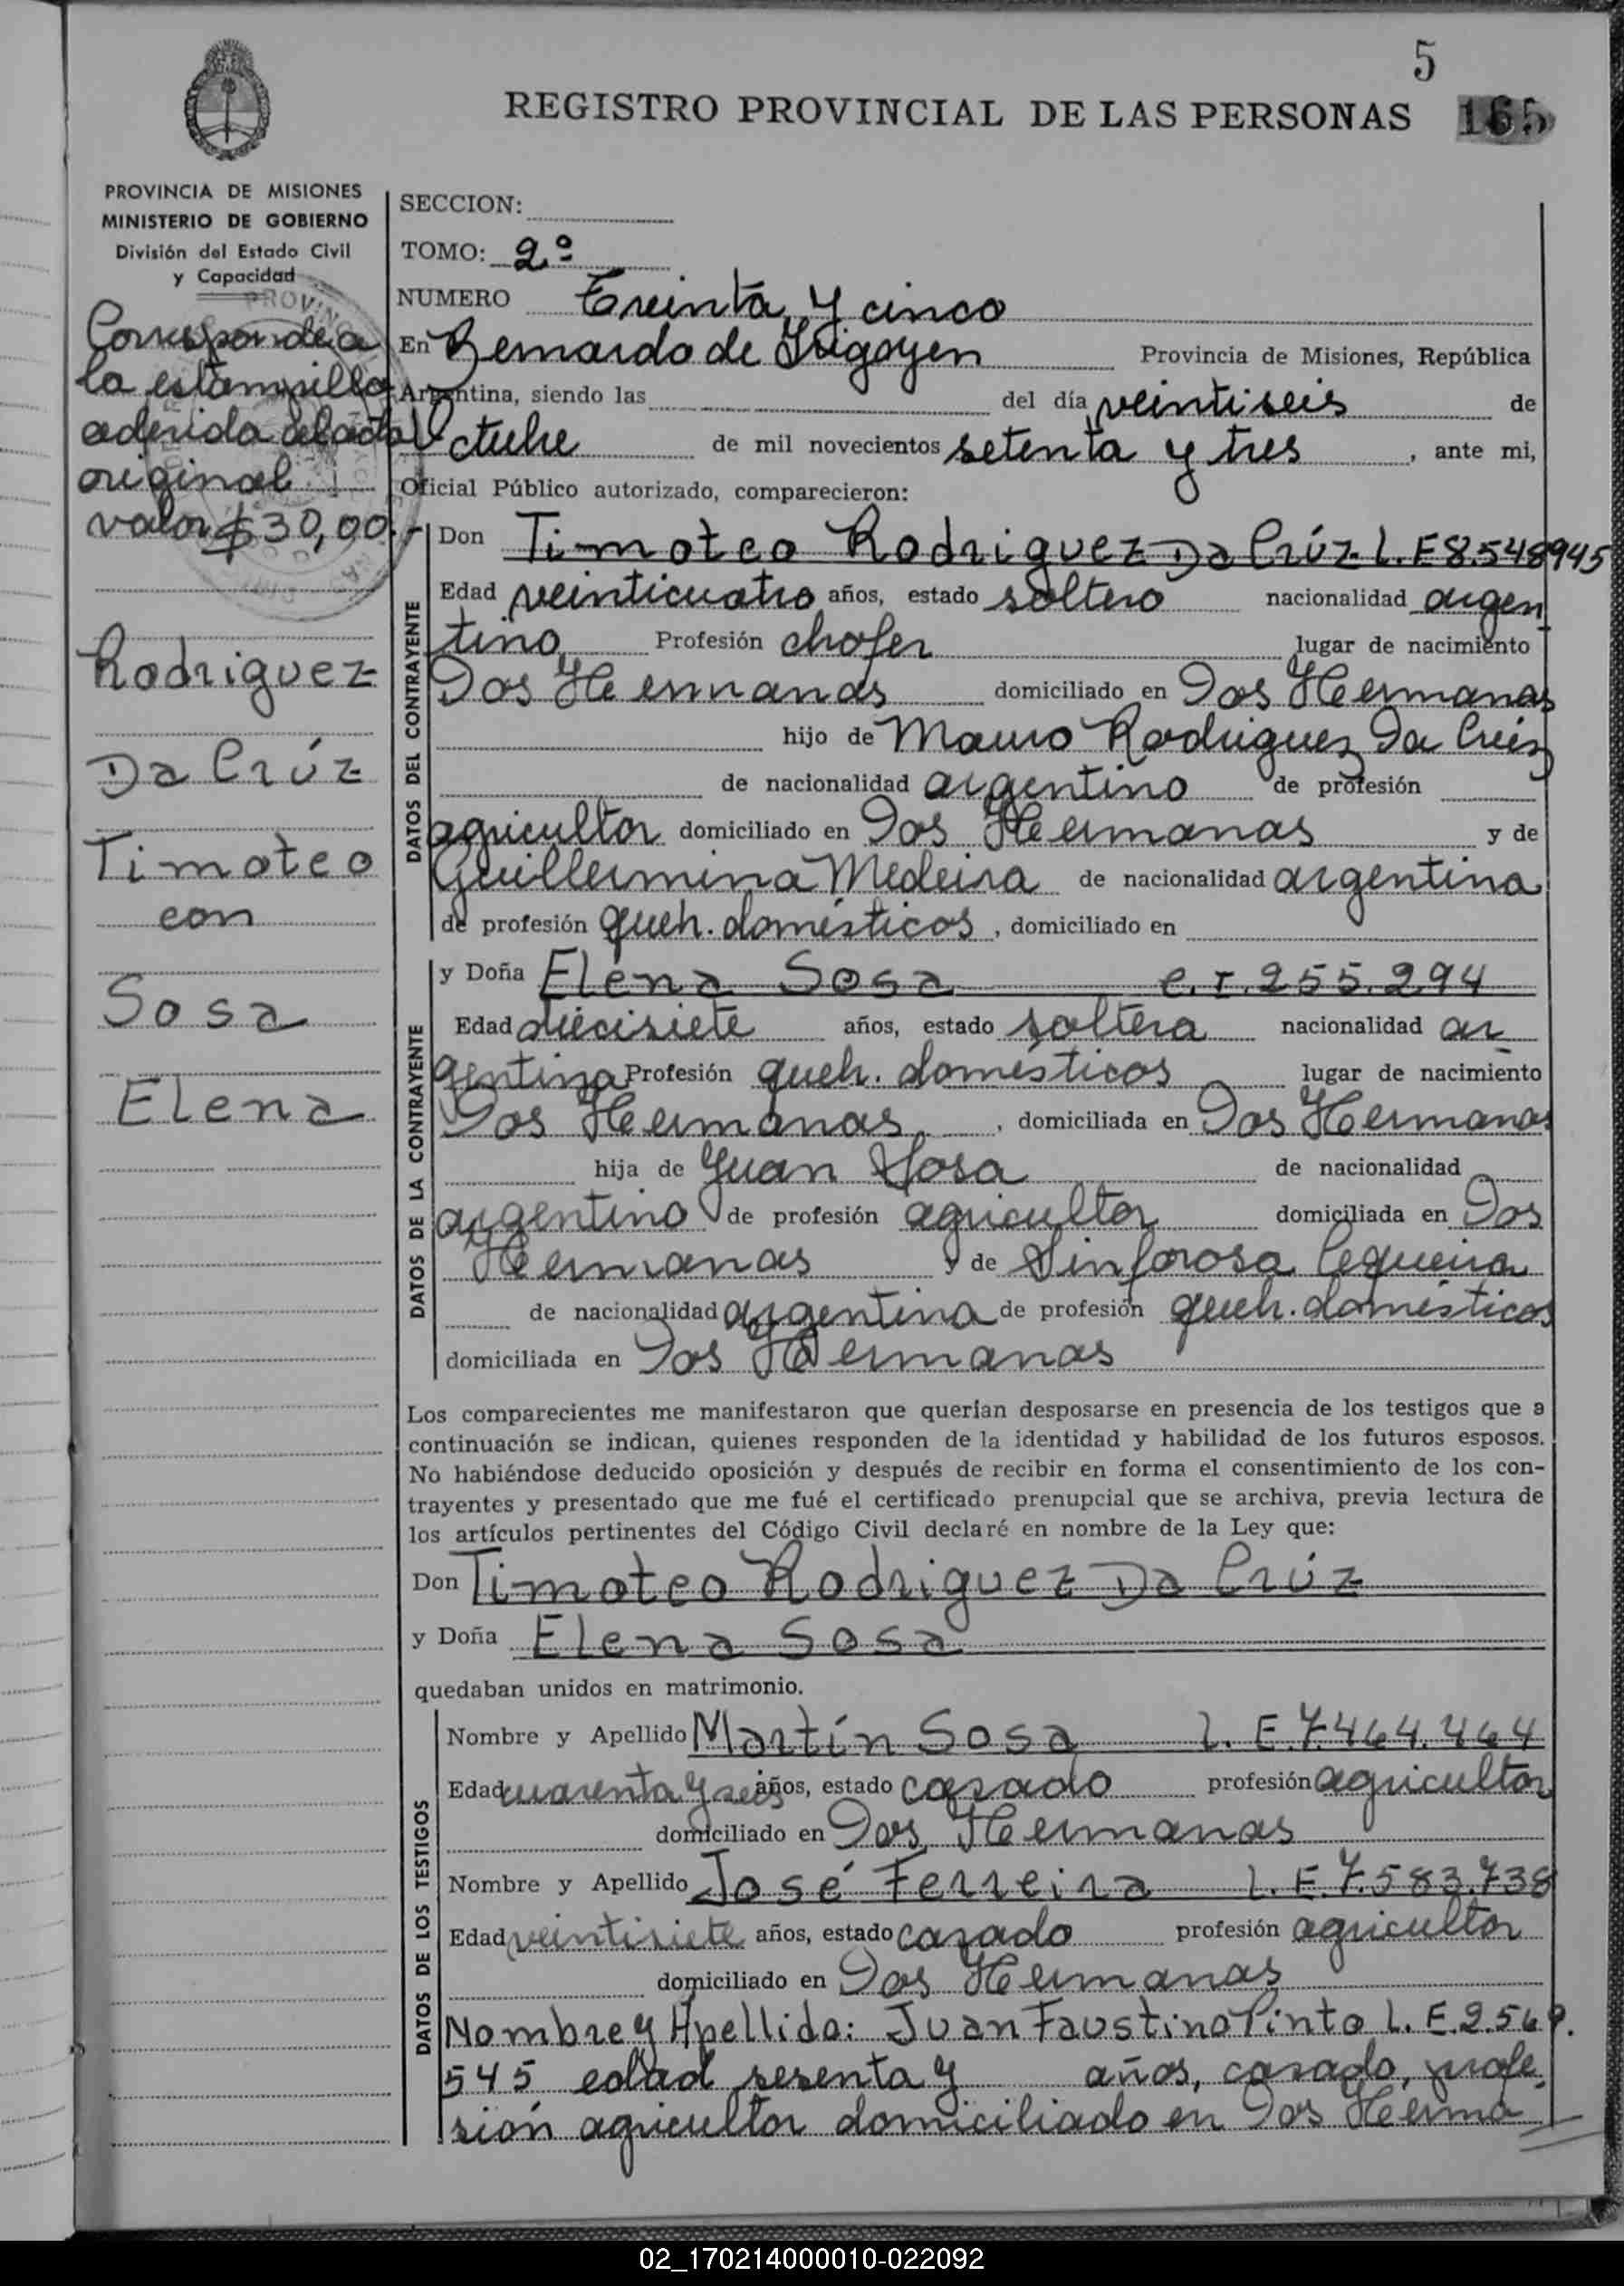 5
REGISTRO PROVINCIAL DE LAS PERSONAS 165
PROVINCIA DE MISIONES
MINISTERIO DE GOBIERNO
División del Estado Civil
y Capacidad
Corresponde a
la estampilla
aderida del acta
original
valor $30,00.-
Rodriguez
Da Crúz
Timoteo
con
Sosa
Elena
SECCION:
TOMO: 2º
NUMERO Treinta y cinco
En Bernardo de Irigoyen Provincia de Misiones, República
Argentina, siendo las del día veintiseis de
Octubre de mil novecientos setenta y tres, ante mi,
Oficial Público autorizado, comparecieron:
DATOS DEL CONTRAYENTE
Don Timoteo Rodriguez Da Crúz L.E 8.548945
Edad veinticuatro años, estado soltero nacionalidad argen
tino Profesión chofer lugar de nacimiento
Dos Hermanas domiciliado en Dos Hermanas
hijo de Mauro Rodriguez Da Crúz
de nacionalidad argentino de profesión
agricultor domiciliado en Dos Hermanas y de
Guillermina Medeira de nacionalidad argentina
de profesión queh. domésticos, domiciliado en
DATOS DE LA CONTRAYENTE
y Doña Elena Sosa C.I. 255.294
Edad diecisiete años, estado soltera nacionalidad ar
gentina Profesión queh. domésticos lugar de nacimiento
Dos Hermanas, domiciliada en Dos Hermanas
hija de Juan Sosa de nacionalidad
argentino de profesión agricultor domiciliada en Dos
Hermanas y de Sinforosa Cequeira
de nacionalidad argentina de profesión queh. domésticos
domiciliada en Dos Hermanas
Los comparecientes me manifestaron que querían desposarse en presencia de los testigos que a
continuación se indican, quienes responden de la identidad y habilidad de los futuros esposos.
No habiéndose deducido oposición y después de recibir en forma el consentimiento de los con-
trayentes y presentado que me fué el certificado prenupcial que se archiva, previa lectura de
los artículos pertinentes del Código Civil declaré en nombre de la Ley que:
Don Timoteo Rodriguez Da Crúz
y Doña Elena Sosa
quedaban unidos en matrimonio.
DATOS DE LOS TESTIGOS
Nombre y Apellido Martín Sosa L. E. 7.464.464
Edad cuarenta y seis años, estado casado profesión agricultor
domiciliado en Dos Hermanas
Nombre y Apellido José Ferreira L. E. 7.583.738
Edad veintisiete años, estado casado profesión agricultor
domiciliado en Dos Hermanas
Nombre y Apellido: Juan Faustino Pinto L. E. 2.569.
545 edad sesenta y años, casado, profe
sión agricultor domiciliado en Dos Herma
02_170214000010-022092